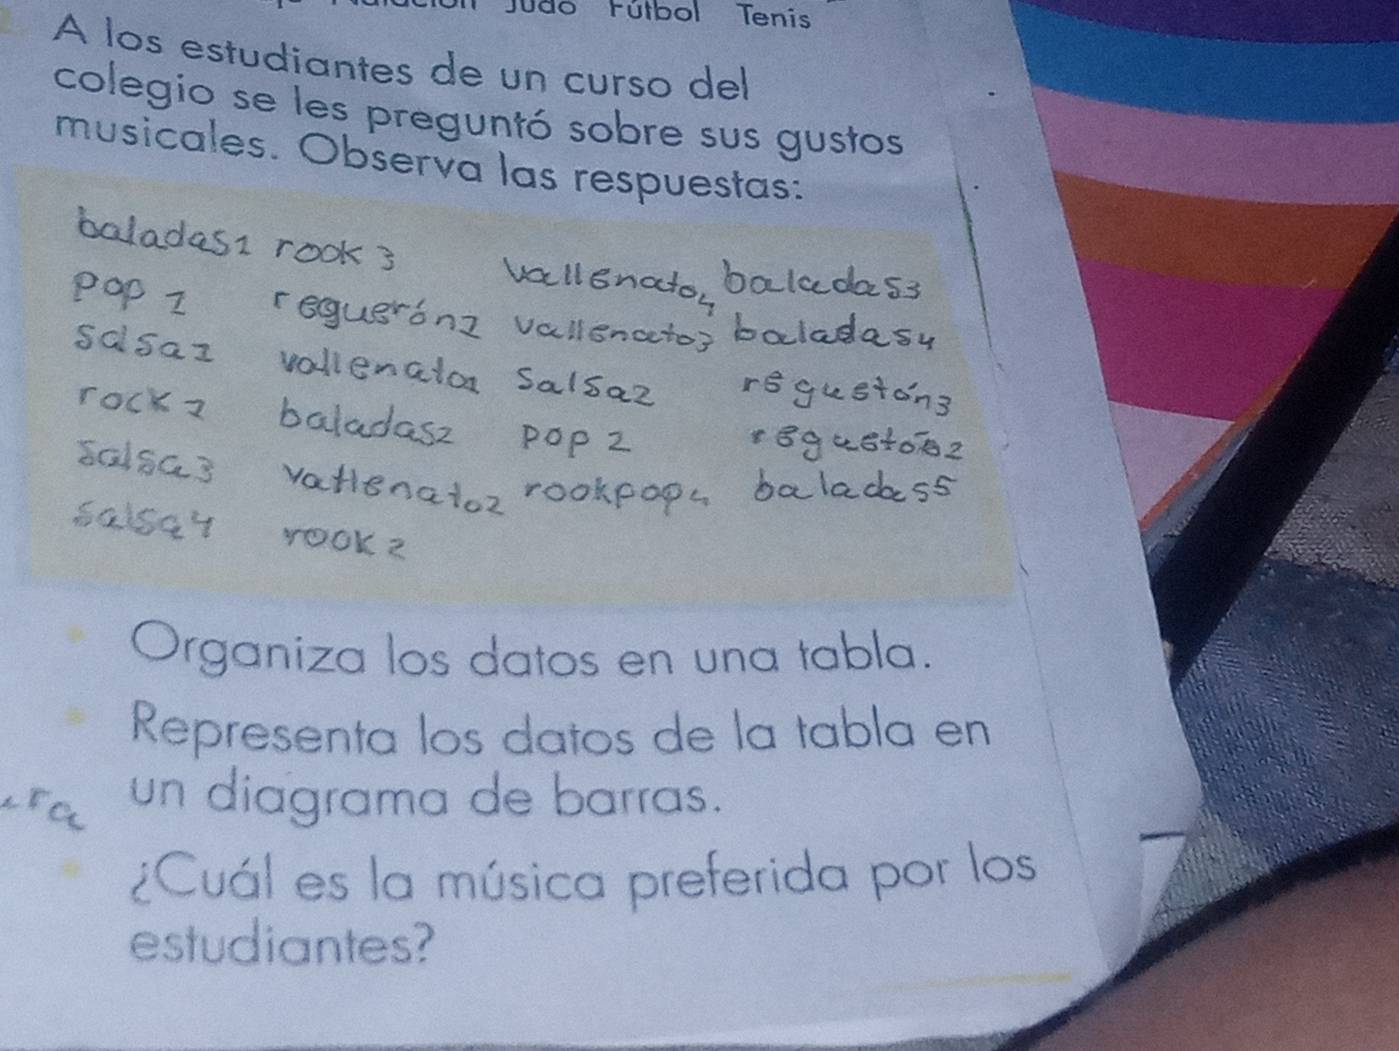 Judo Fútbol Tenis
A los estudiantes de un curso del
colegio se les preguntó sobre sus gustos
musicales. Observa las respuestas:
baladas1 rook3 vallenato4 baladas3
pop 1 reguerón1 vallenato3 baladas4
salsa1 vallenato1 salsa2 reguetón3
rock2 baladas2 pop 2 reguetón2
salsa3 vallenato2 rookpop4 baladas5
salsa4 rook2
Organiza los datos en una tabla.
Representa los datos de la tabla en
un diagrama de barras.
¿Cuál es la música preferida por los
estudiantes?